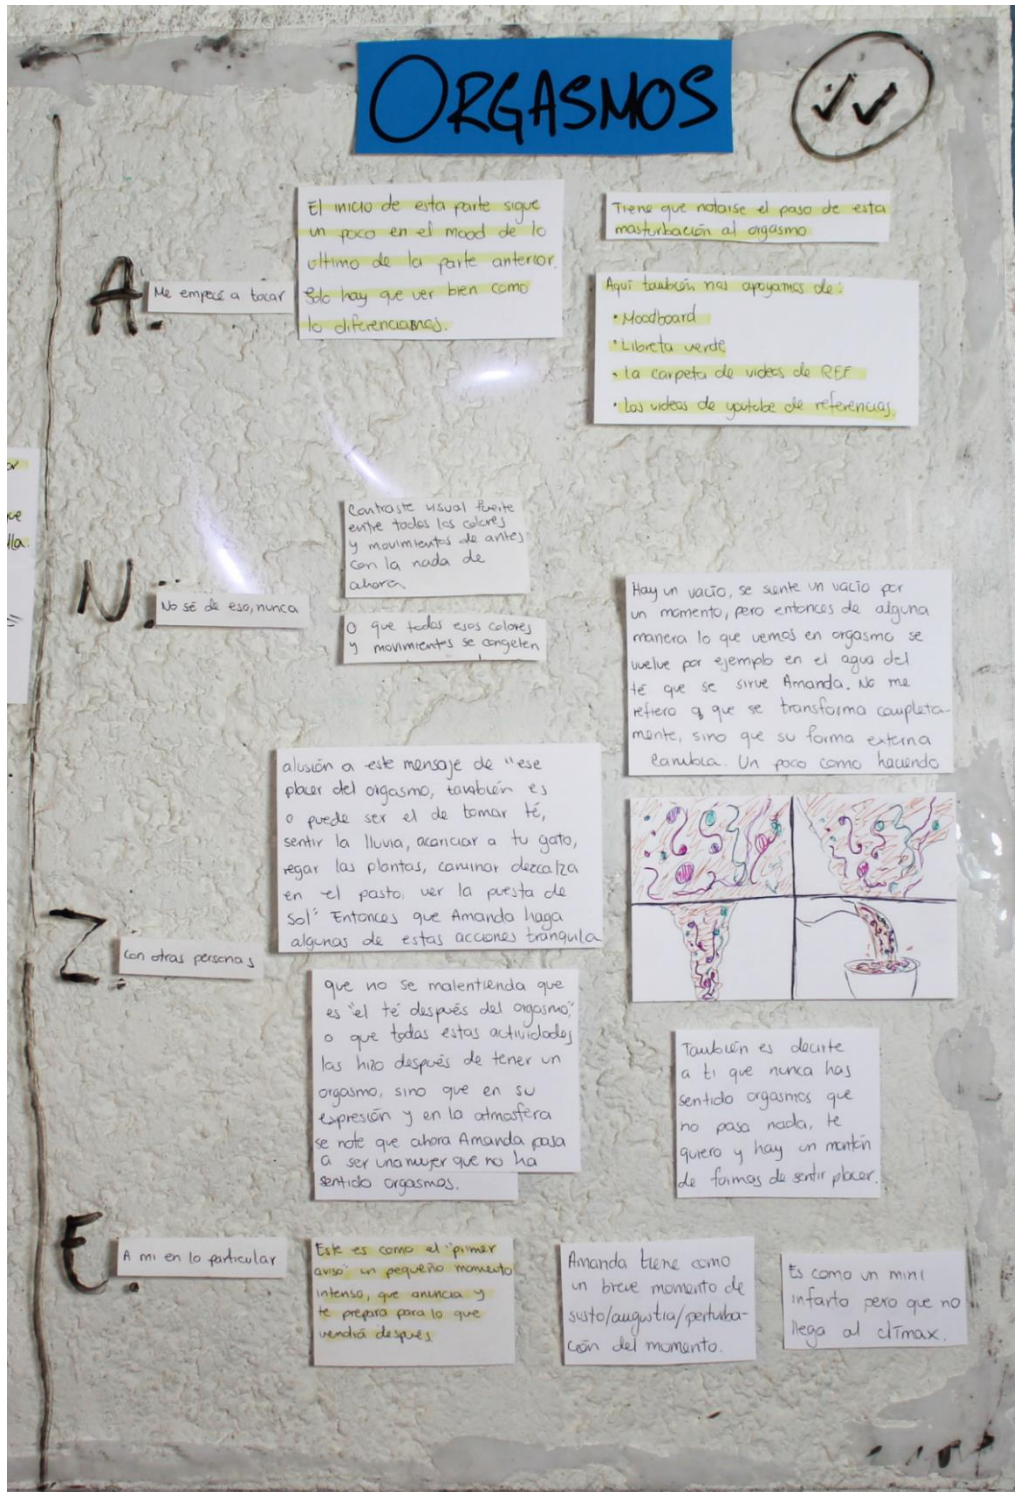 ORGASMOS
A:
Me empecé a tocar
El inicio de esta parte sigue
un poco en el mood de lo
último de la parte anterior.
Solo hay que ver bien como
lo diferenciamos.
Tiene que notarse el paso de esta
masturbación al orgasmo
Aquí también nos apoyamos de:
• Moodboard
• Libreta verde
• La carpeta de videos de REF
• Los videos de youtube de referencias.
lla.
N:
No sé de eso, nunca
Contraste visual fuerte
entre todos los colores
y movimientos de antes
con la nada de
ahora
O que todos esos colores
y movimientos se congelen
Hay un vacío, se siente un vacío por
un momento, pero entonces de alguna
manera lo que vemos en orgasmo se
vuelve por ejemplo en el agua del
té que se sirve Amanda. No me
refiero a que se transforma completa-
mente, sino que su forma externa
cambia. Un poco como haciendo
alusión a este mensaje de "ese
placer del orgasmo, también es
o puede ser el de tomar té,
sentir la lluvia, acariciar a tu gato,
regar las plantas, caminar dezcalza
en el pasto, ver la puesta de
sol" Entonces que Amanda haga
algunas de estas acciones tranquila
Z:
Con otras personas
que no se malentienda que
es "el té después del orgasmo",
o que todas estas actividades
las hizo después de tener un
orgasmo, sino que en su
expresión y en la atmosfera
se note que ahora Amanda pasa
a ser una mujer que no ha
sentido orgasmos.
También es decirte
a ti que nunca has
sentido orgasmos que
no pasa nada, te
quiero y hay un montón
de formas de sentir placer.
E:
A mi en lo particular
Este es como el "primer
aviso" un pequeño momento
intenso, que anuncia y
te prepara para lo que
vendrá después
Amanda tiene como
un breve momento de
susto/angustia/perturba-
ción del momento.
Es como un mini
infarto pero que no
llega al clímax.